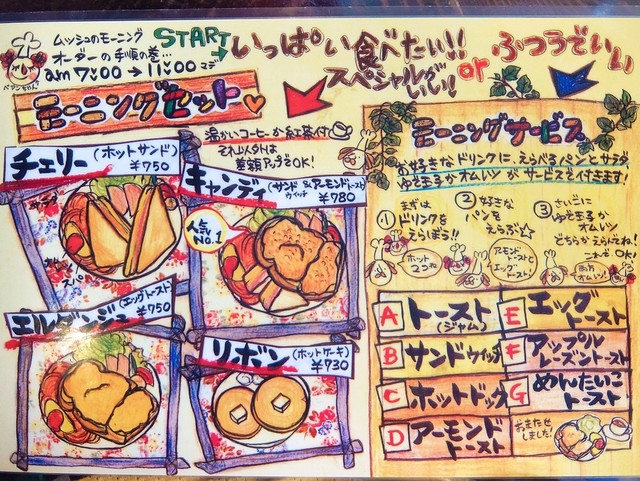 ムッシュのモーニング
オーダーの手順の巻…
am 7:00 → 11:00 マデ
ペアンちゃん
START
いっぱい食べたい!!
スペシャルが
いい!!
or
ふつうでいい
モーニングセット
温かいコーヒーか紅茶付
それ以外は
差額アップでOK!
チェリー(ホットサンド)
¥750
サラダ
キャンディ(サンドウィッチ&アーモンドトースト)
¥780
人気
NO.1
エルダンジュ(エッグトースト)
¥750
リボン(ホットケーキ)
¥730
モーニングサービス
お好きなドリンクに、えらべるパンとサラダ
ゆで玉子かオムレツがサービスで付きます!
①まずは
ドリンクを
えらぼう!!
ホット
2つね
②好きな
パンを
えらぶ☆
アーモンド
トーストと
エッグ
トースト!
③さいごに
ゆで玉子か
オムレツ
どちらかえらんでね!
これで、OK!
両方
オムレツ!
A トースト
(ジャム)
B サンドウィッチ
C ホットドッグ
D アーモンド
トースト
E エッグ
トースト
F アップル
レーズントースト
G めんたいこ
トースト
おまたせ
しました!